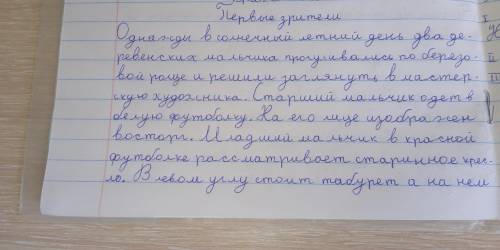 Первые зрители
Однажды в солнечный летний день два де-
ревенских мальчика прогуливались по березо-
вой роще и решили заглянуть в мастер-
скую художника. Старший мальчик одет в
белую футболку. На его лице изображен
восторг. Младший мальчик в красной
футболке рассматривает старинное крес-
ло. В левом углу стоит табурет а на нем
I
II
III